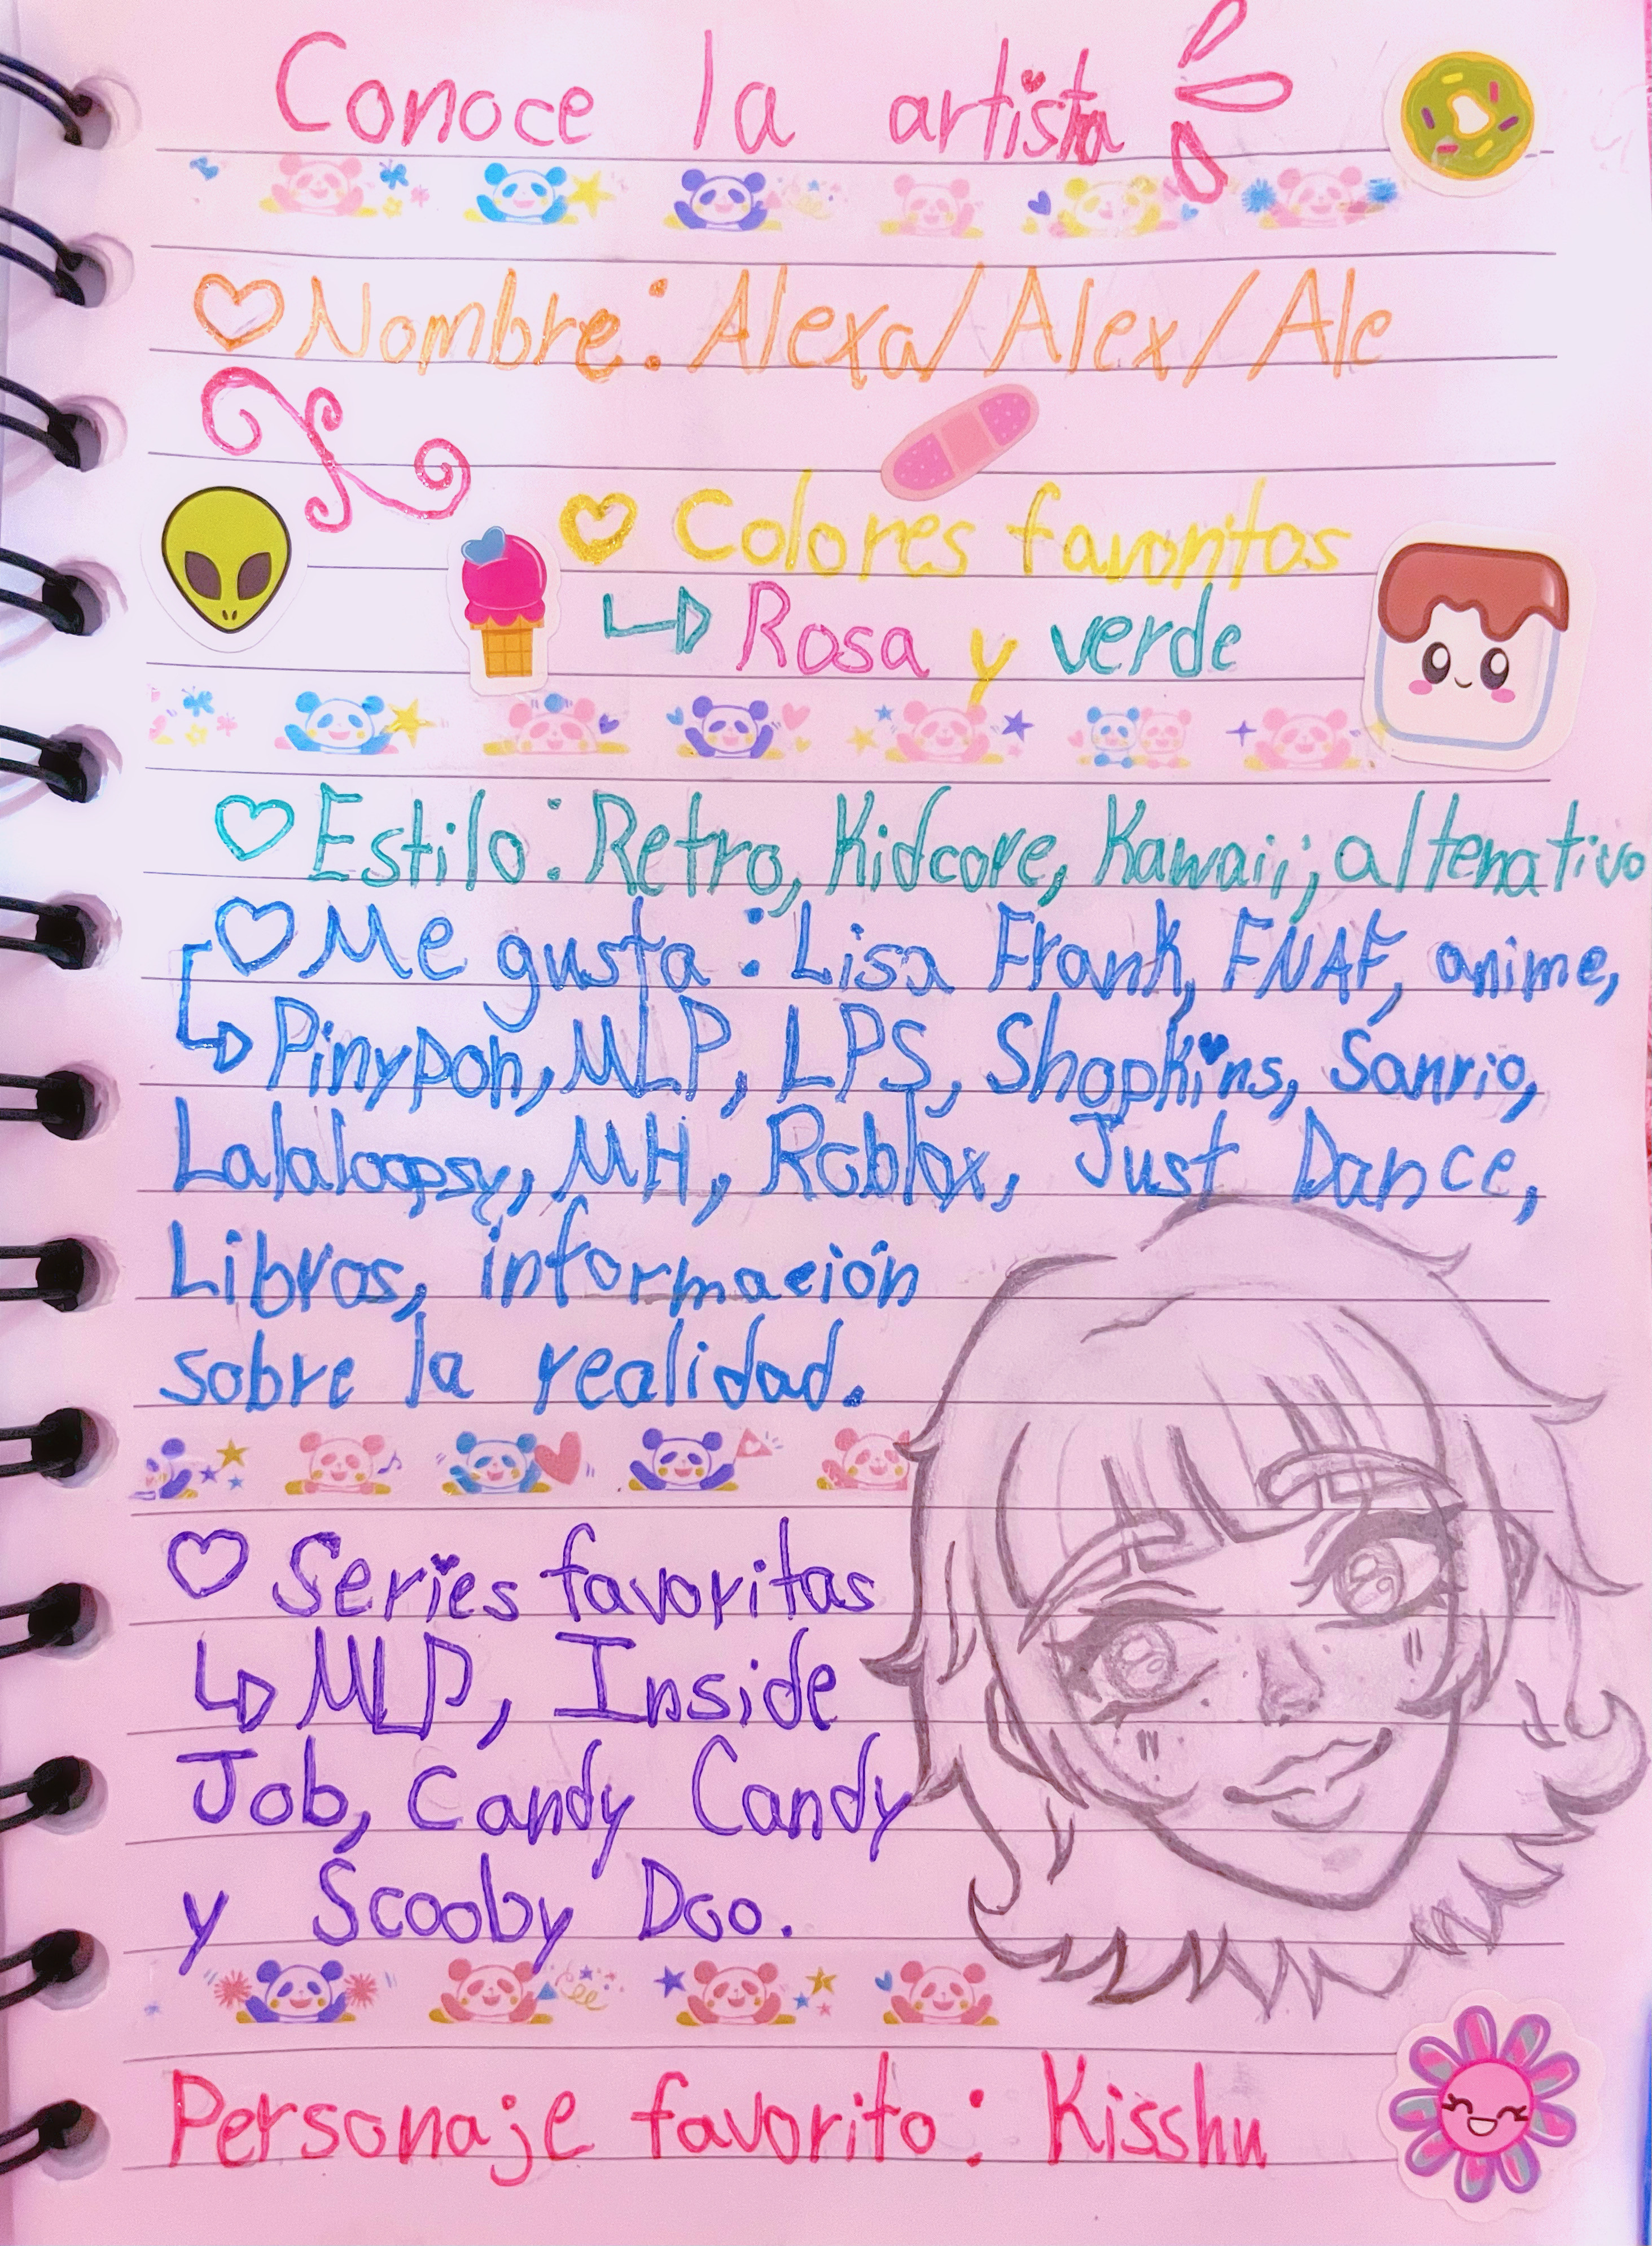 Conoce la artista
Nombre: Alexa/Alex/Ale
Colores favoritos
Rosa y verde
Estilo: Retro, Kidcore, Kawaii, alternativo
Me gusta: Lisa Frank, FNAF, anime,
Pinypon, MLP, LPS, Shopkins, Sanrio,
Lalaloopsy, MH, Roblox, Just Dance,
Libros, información
sobre la realidad.
Series favoritas
MLP, Inside
Job, Candy Candy
y Scooby Doo.
Personaje favorito: Kisshu